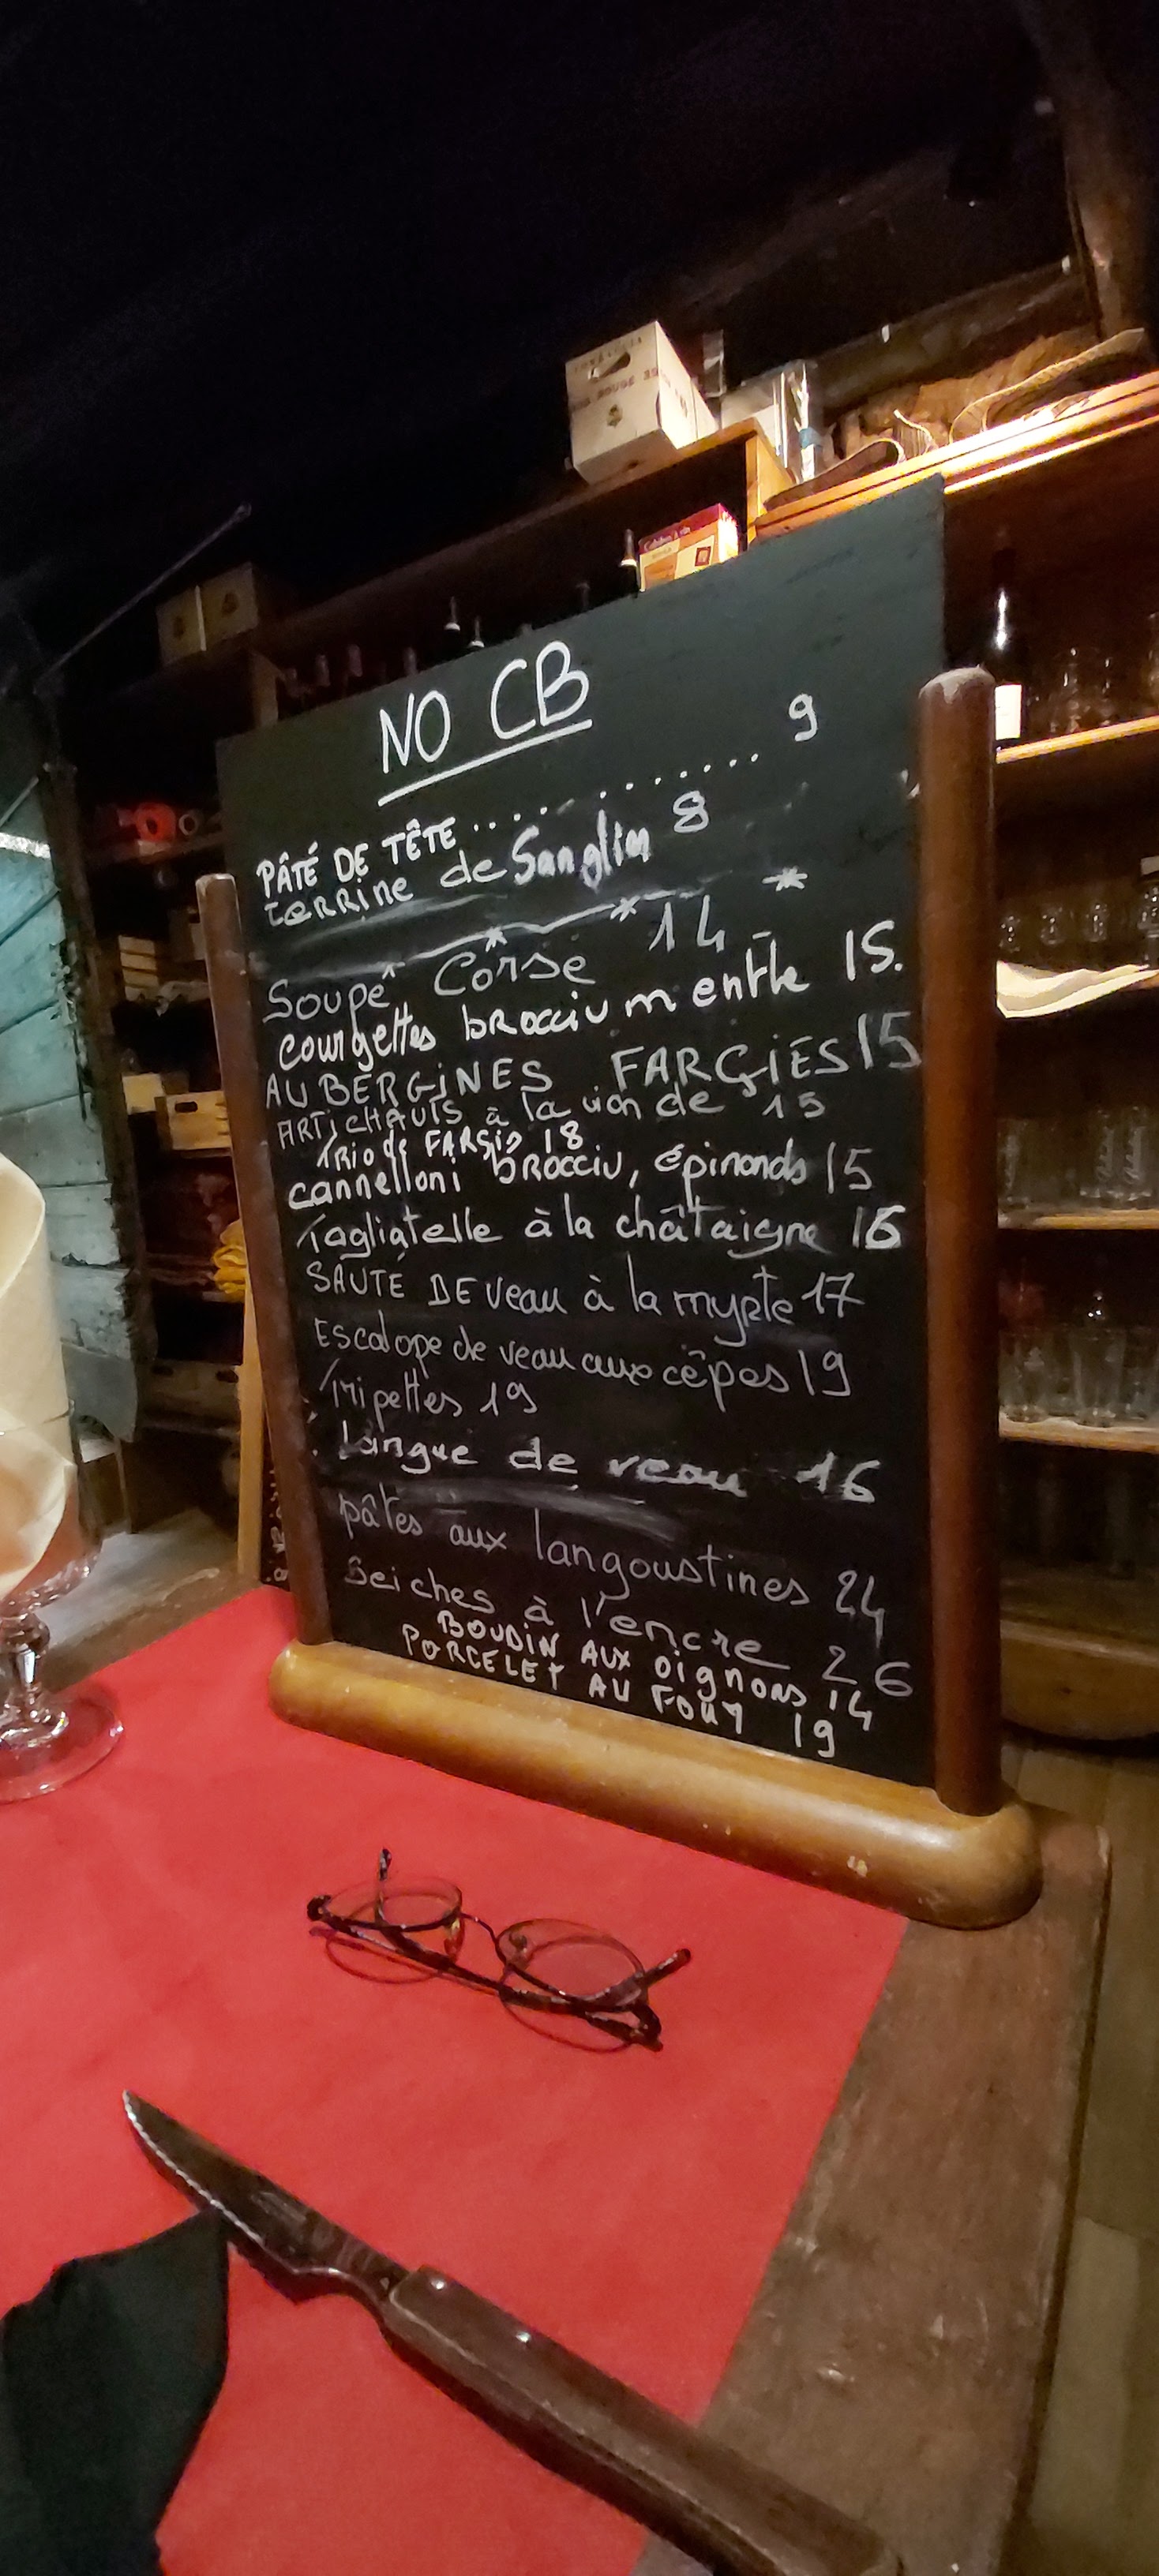 NO CB
PÂTÉ DE TÊTE ............ 9
terrine de Sanglier 8
* * *
Soupe Corse 14
courgettes brocciu menthe 15.
AUBERGINES FARCIES 15
ARTICHAUTS à la viande 15
TRIO de FARCIS 18
cannelloni brocciu, épinards 15
Tagliatelle à la châtaigne 16
SAUTÉ DE veau à la myrte 17
Escalope de veau aux cêpes 19
Tripettes 19
Langue de veau 16
pâtes aux langoustines 24
Seiches à l'encre 26
BOUDIN AUX oignons 14
PORCELET AU FOUR 19